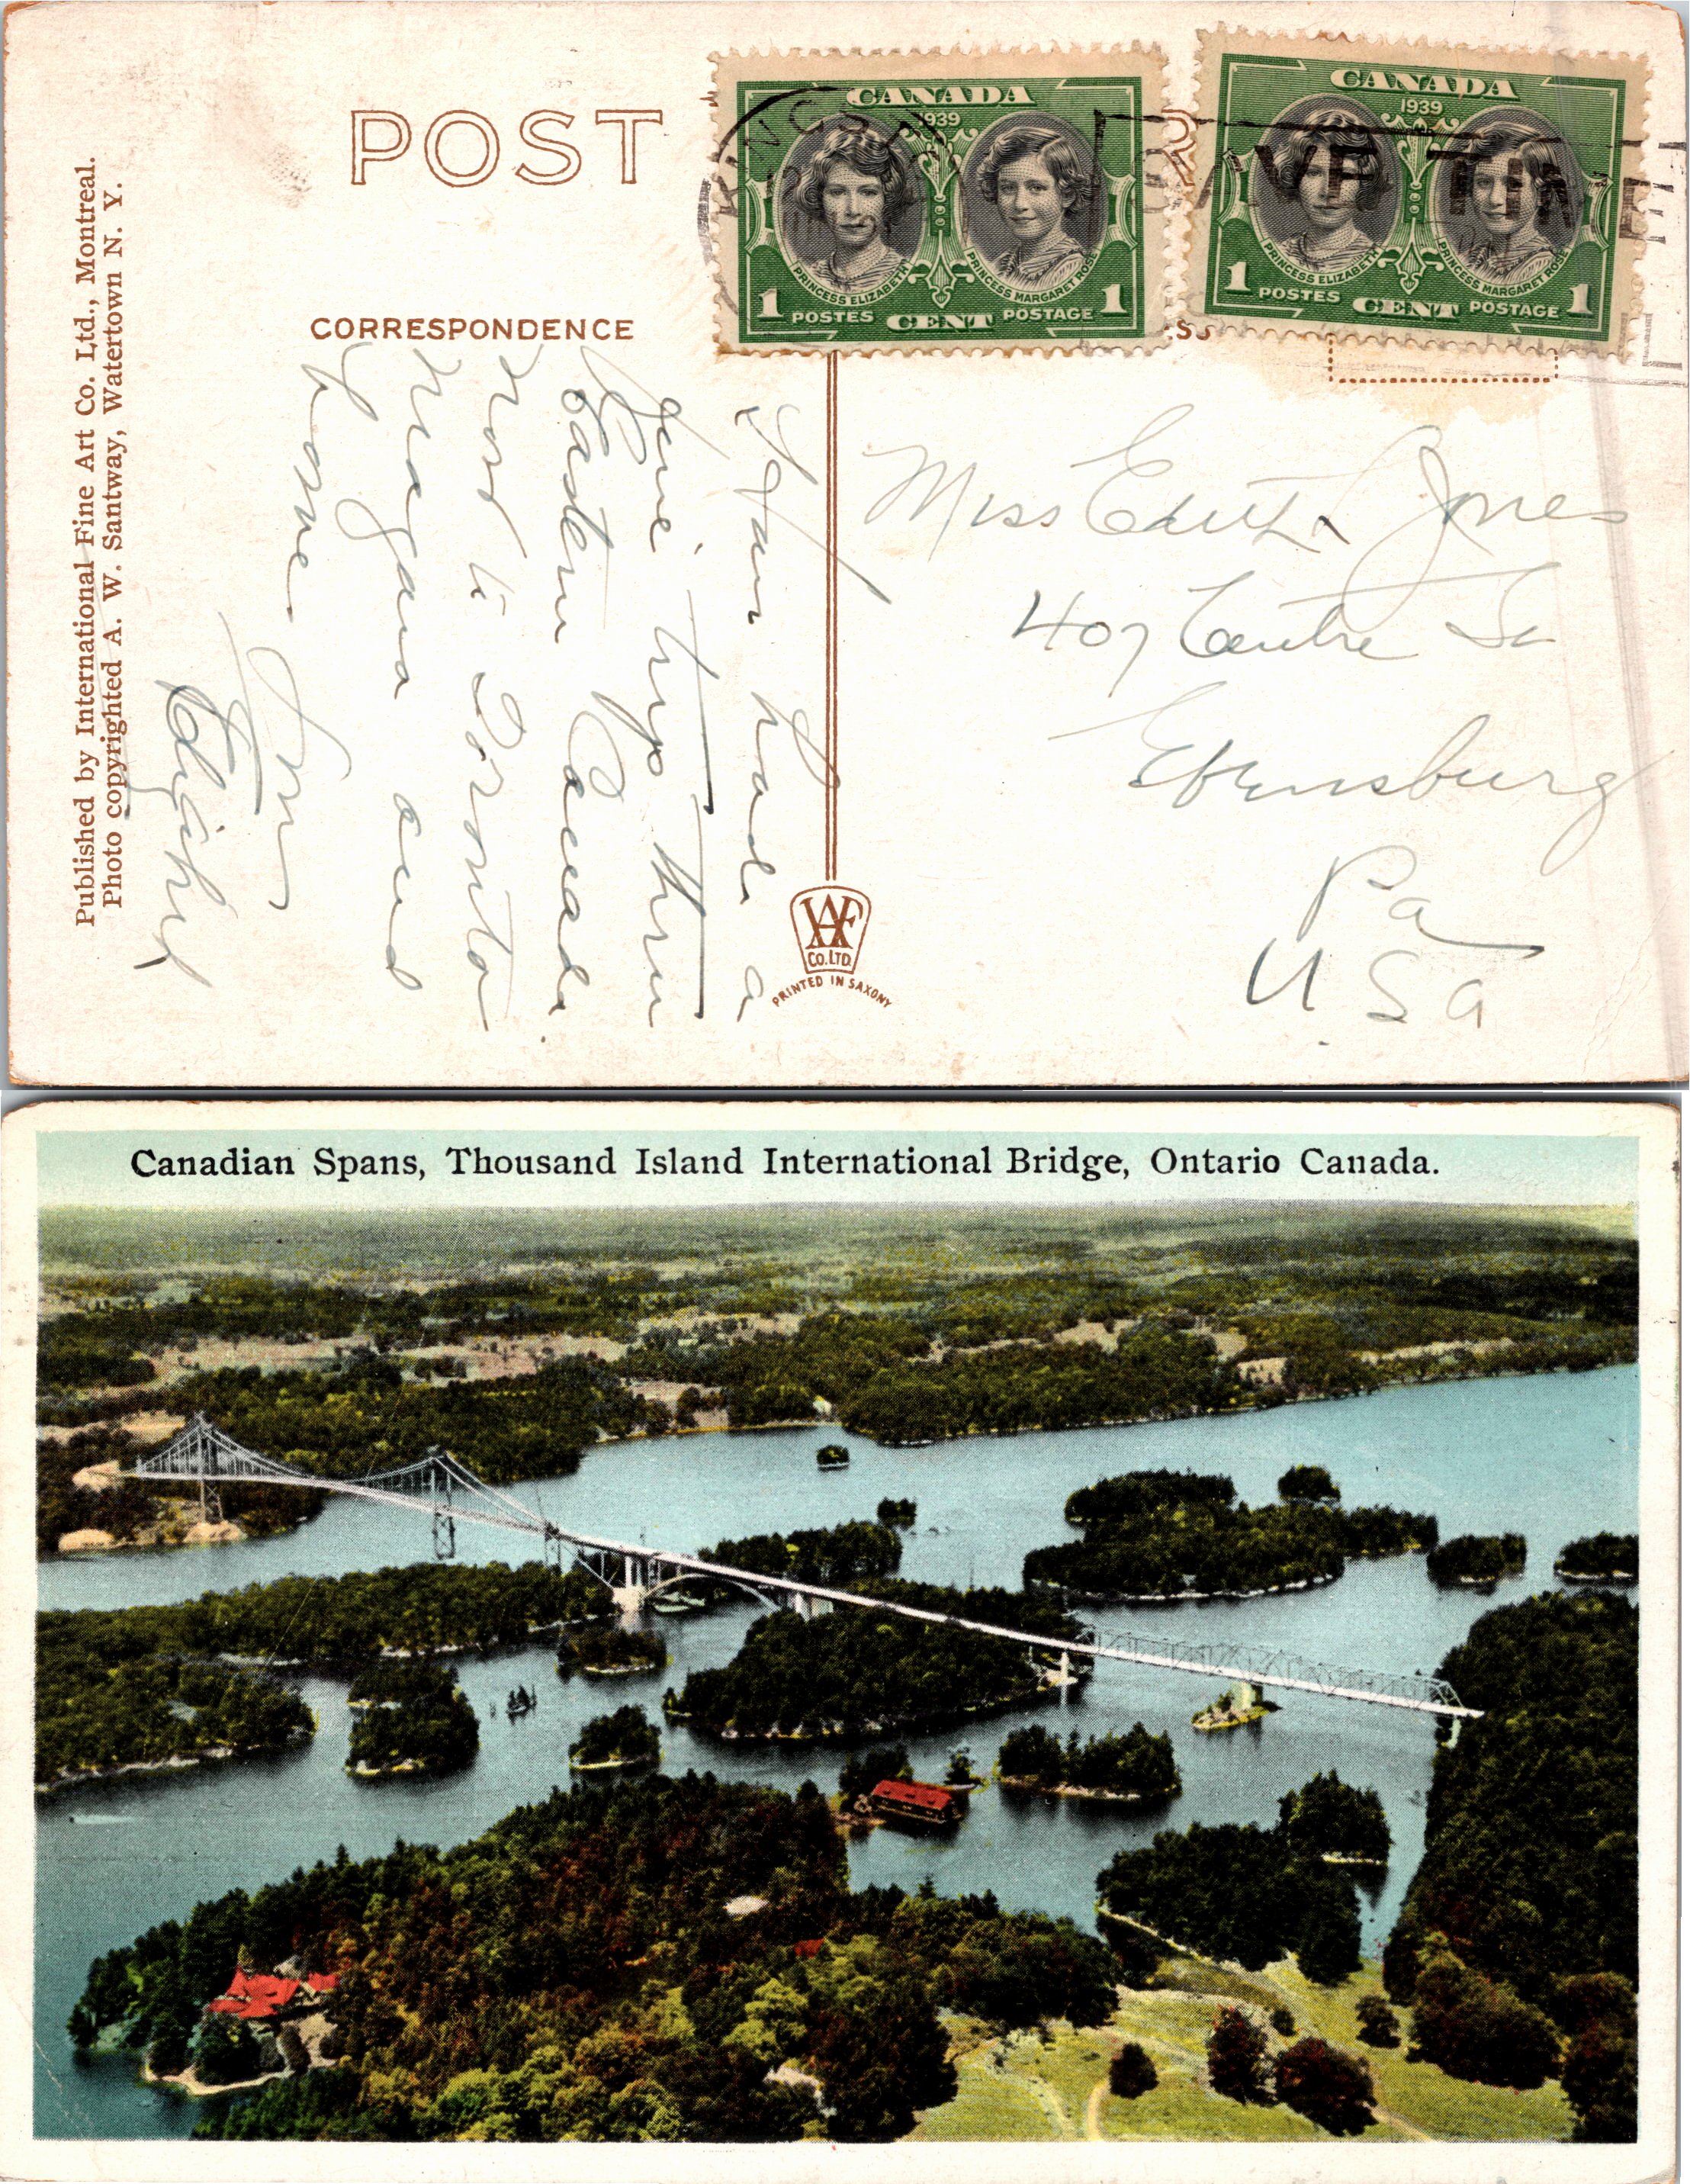 POST
CANADA
1939
PRINCESS ELIZABETH
PRINCESS MARGARET ROSE
1 POSTES CENT POSTAGE 1
CANADA
1939
PRINCESS ELIZABETH
PRINCESS MARGARET ROSE
1 POSTES CENT POSTAGE 1
KINGST
SAVE TIME
Published by International Fine Art Co. Ltd., Montreal.
Photo copyrighted A. W. Santway, Watertown N. Y.
CORRESPONDENCE
had a
fine trip thru
Eastern Canada.
Now to Toronto
Niagara and
home.
Miss Edith Jones
407 Centre St
Ebensburg
Pa
U.S.A
IFA
CO. LTD.
PRINTED IN SAXONY
Canadian Spans, Thousand Island International Bridge, Ontario Canada.